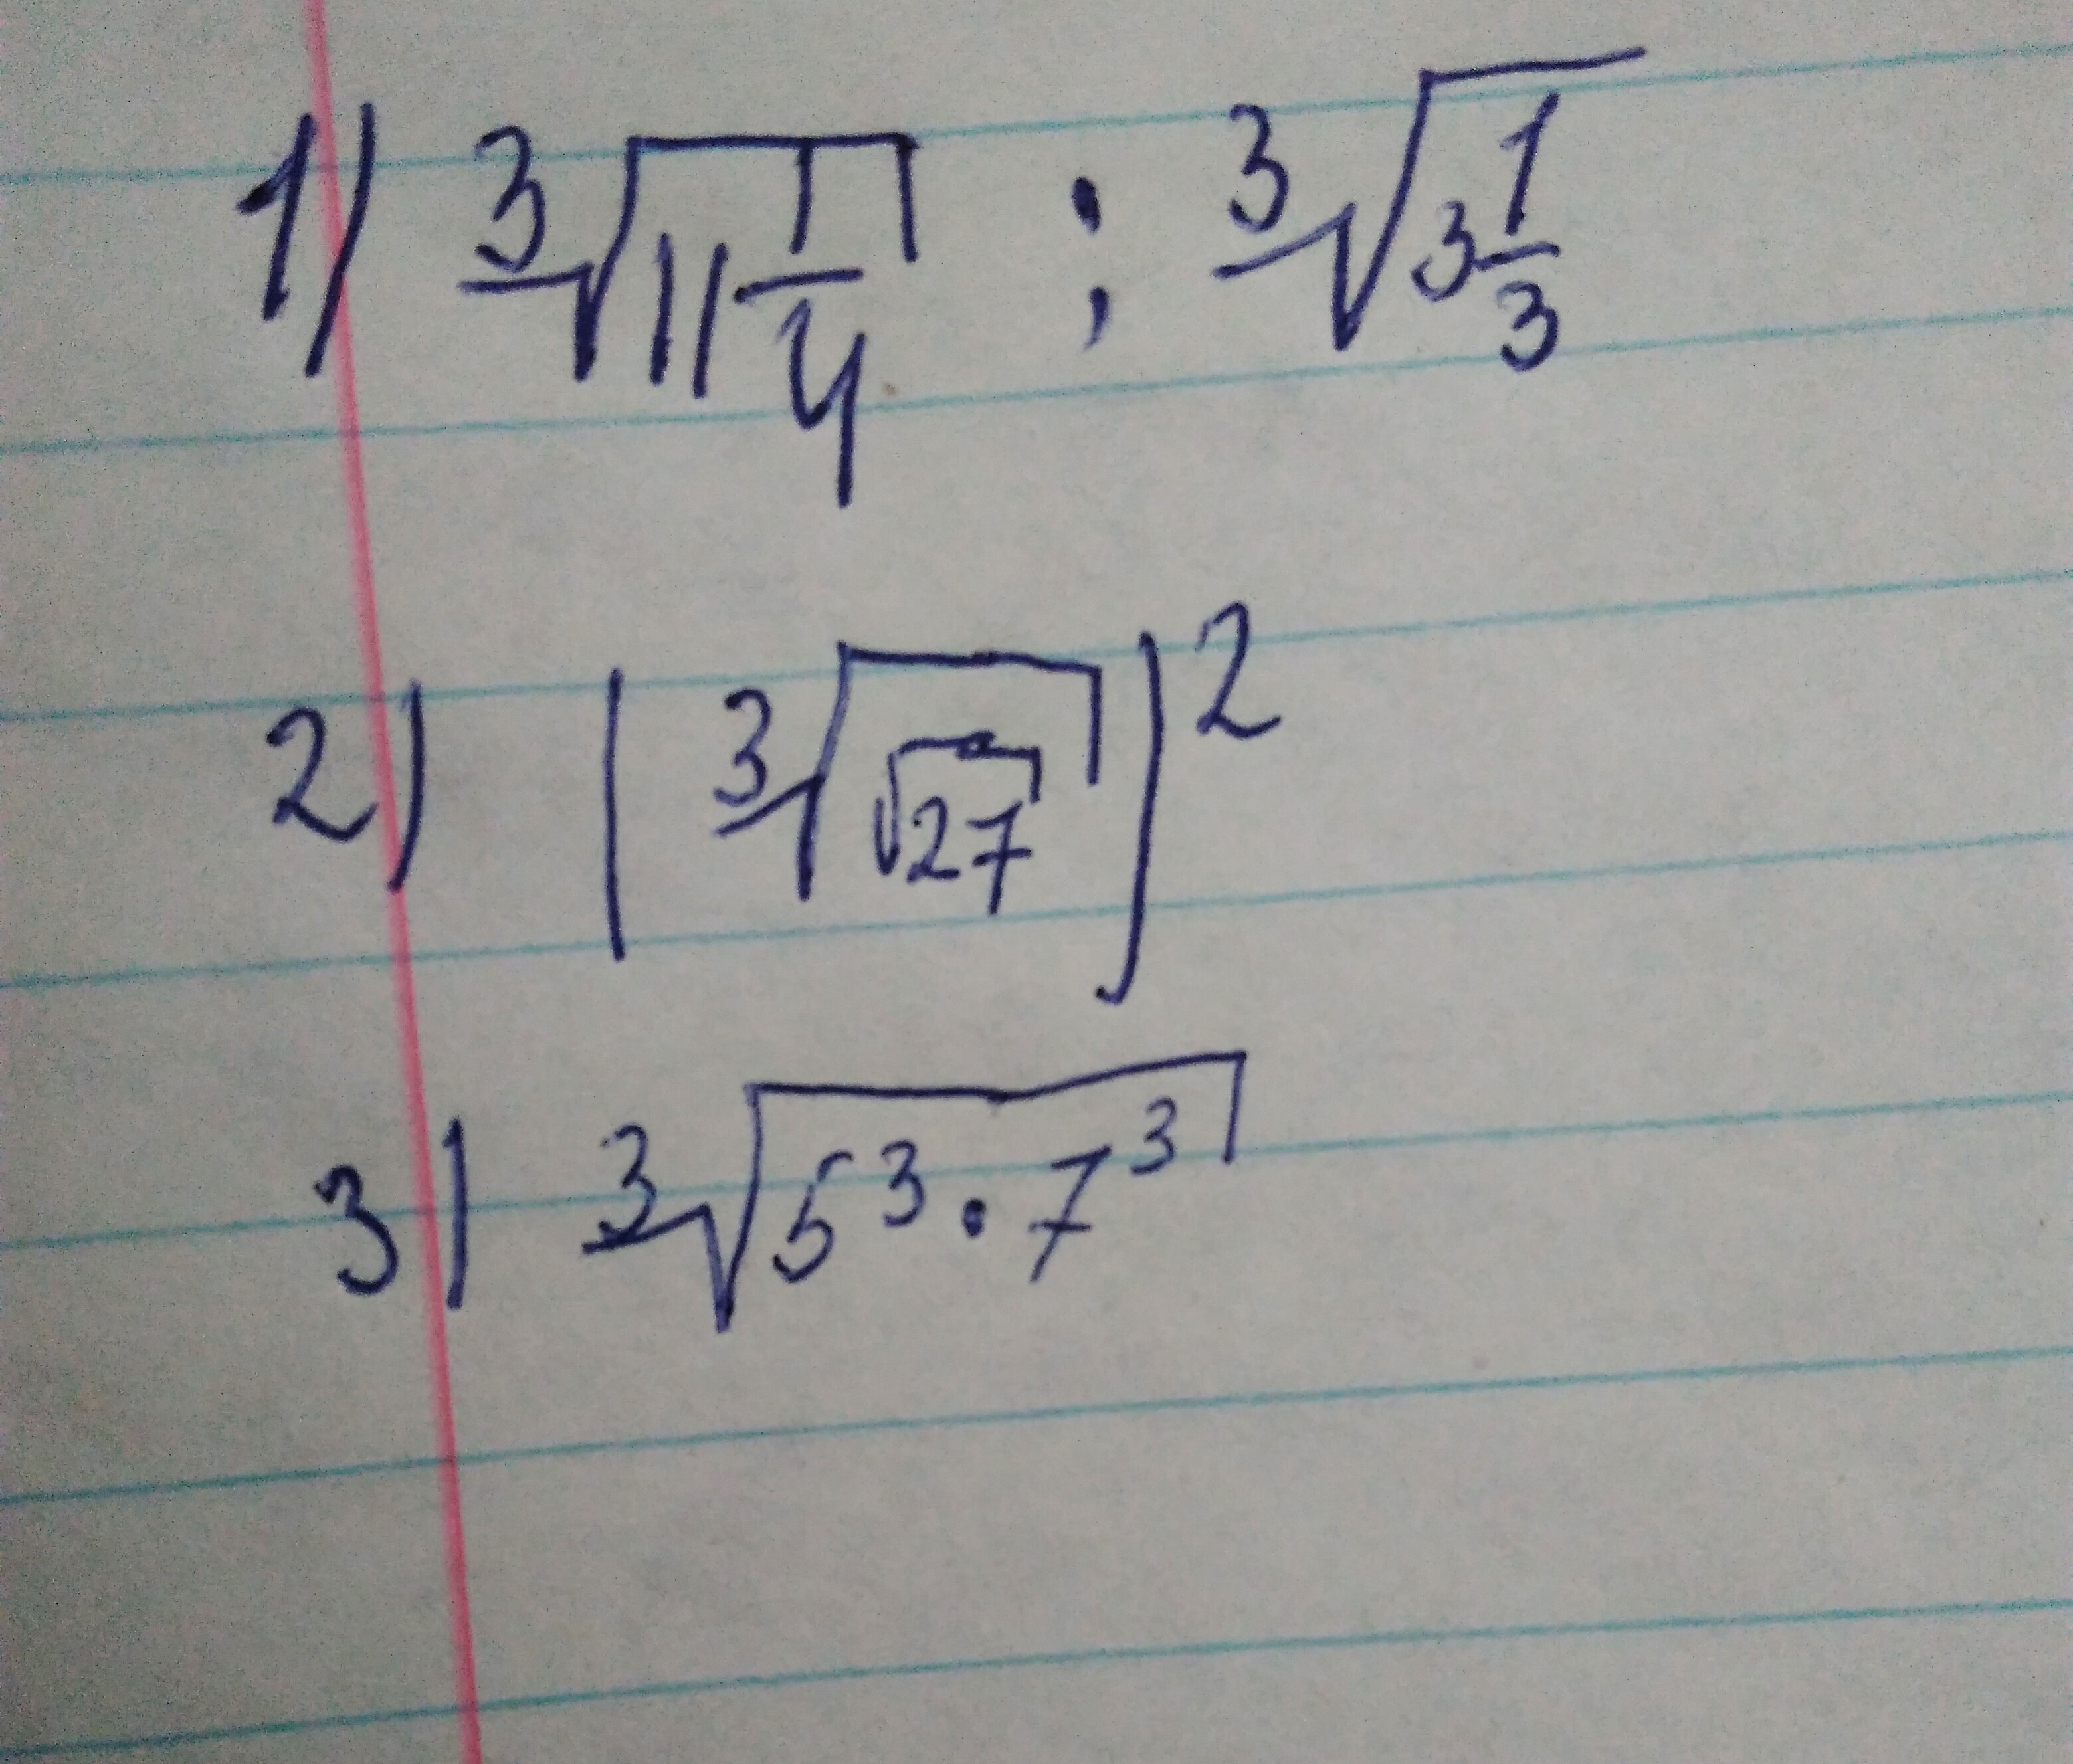 1) ∛(11 1/4) : ∛(3 1/3)
2) (∛(√27))²
3) ∛(5³ · 7³)